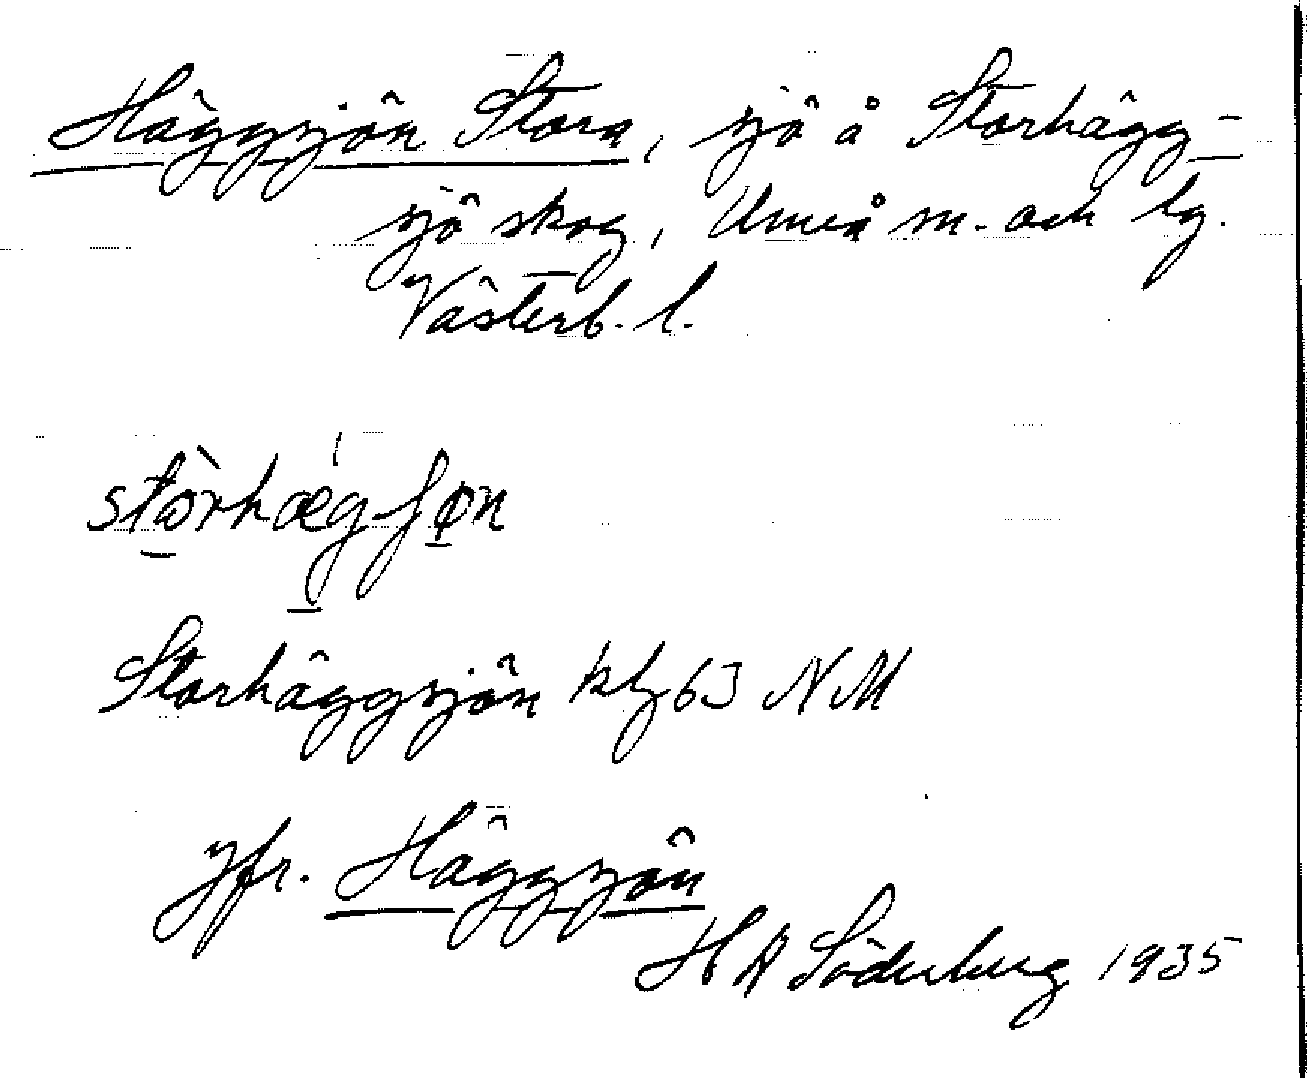 Häggsjön Stora, sjö å Storhägg-
sjö skog, Umeå m. och lg.
Västerb. l.
Storhäggsjön kbl 63 NM
Jfr. Häggsjön
H A Söderberg 1935